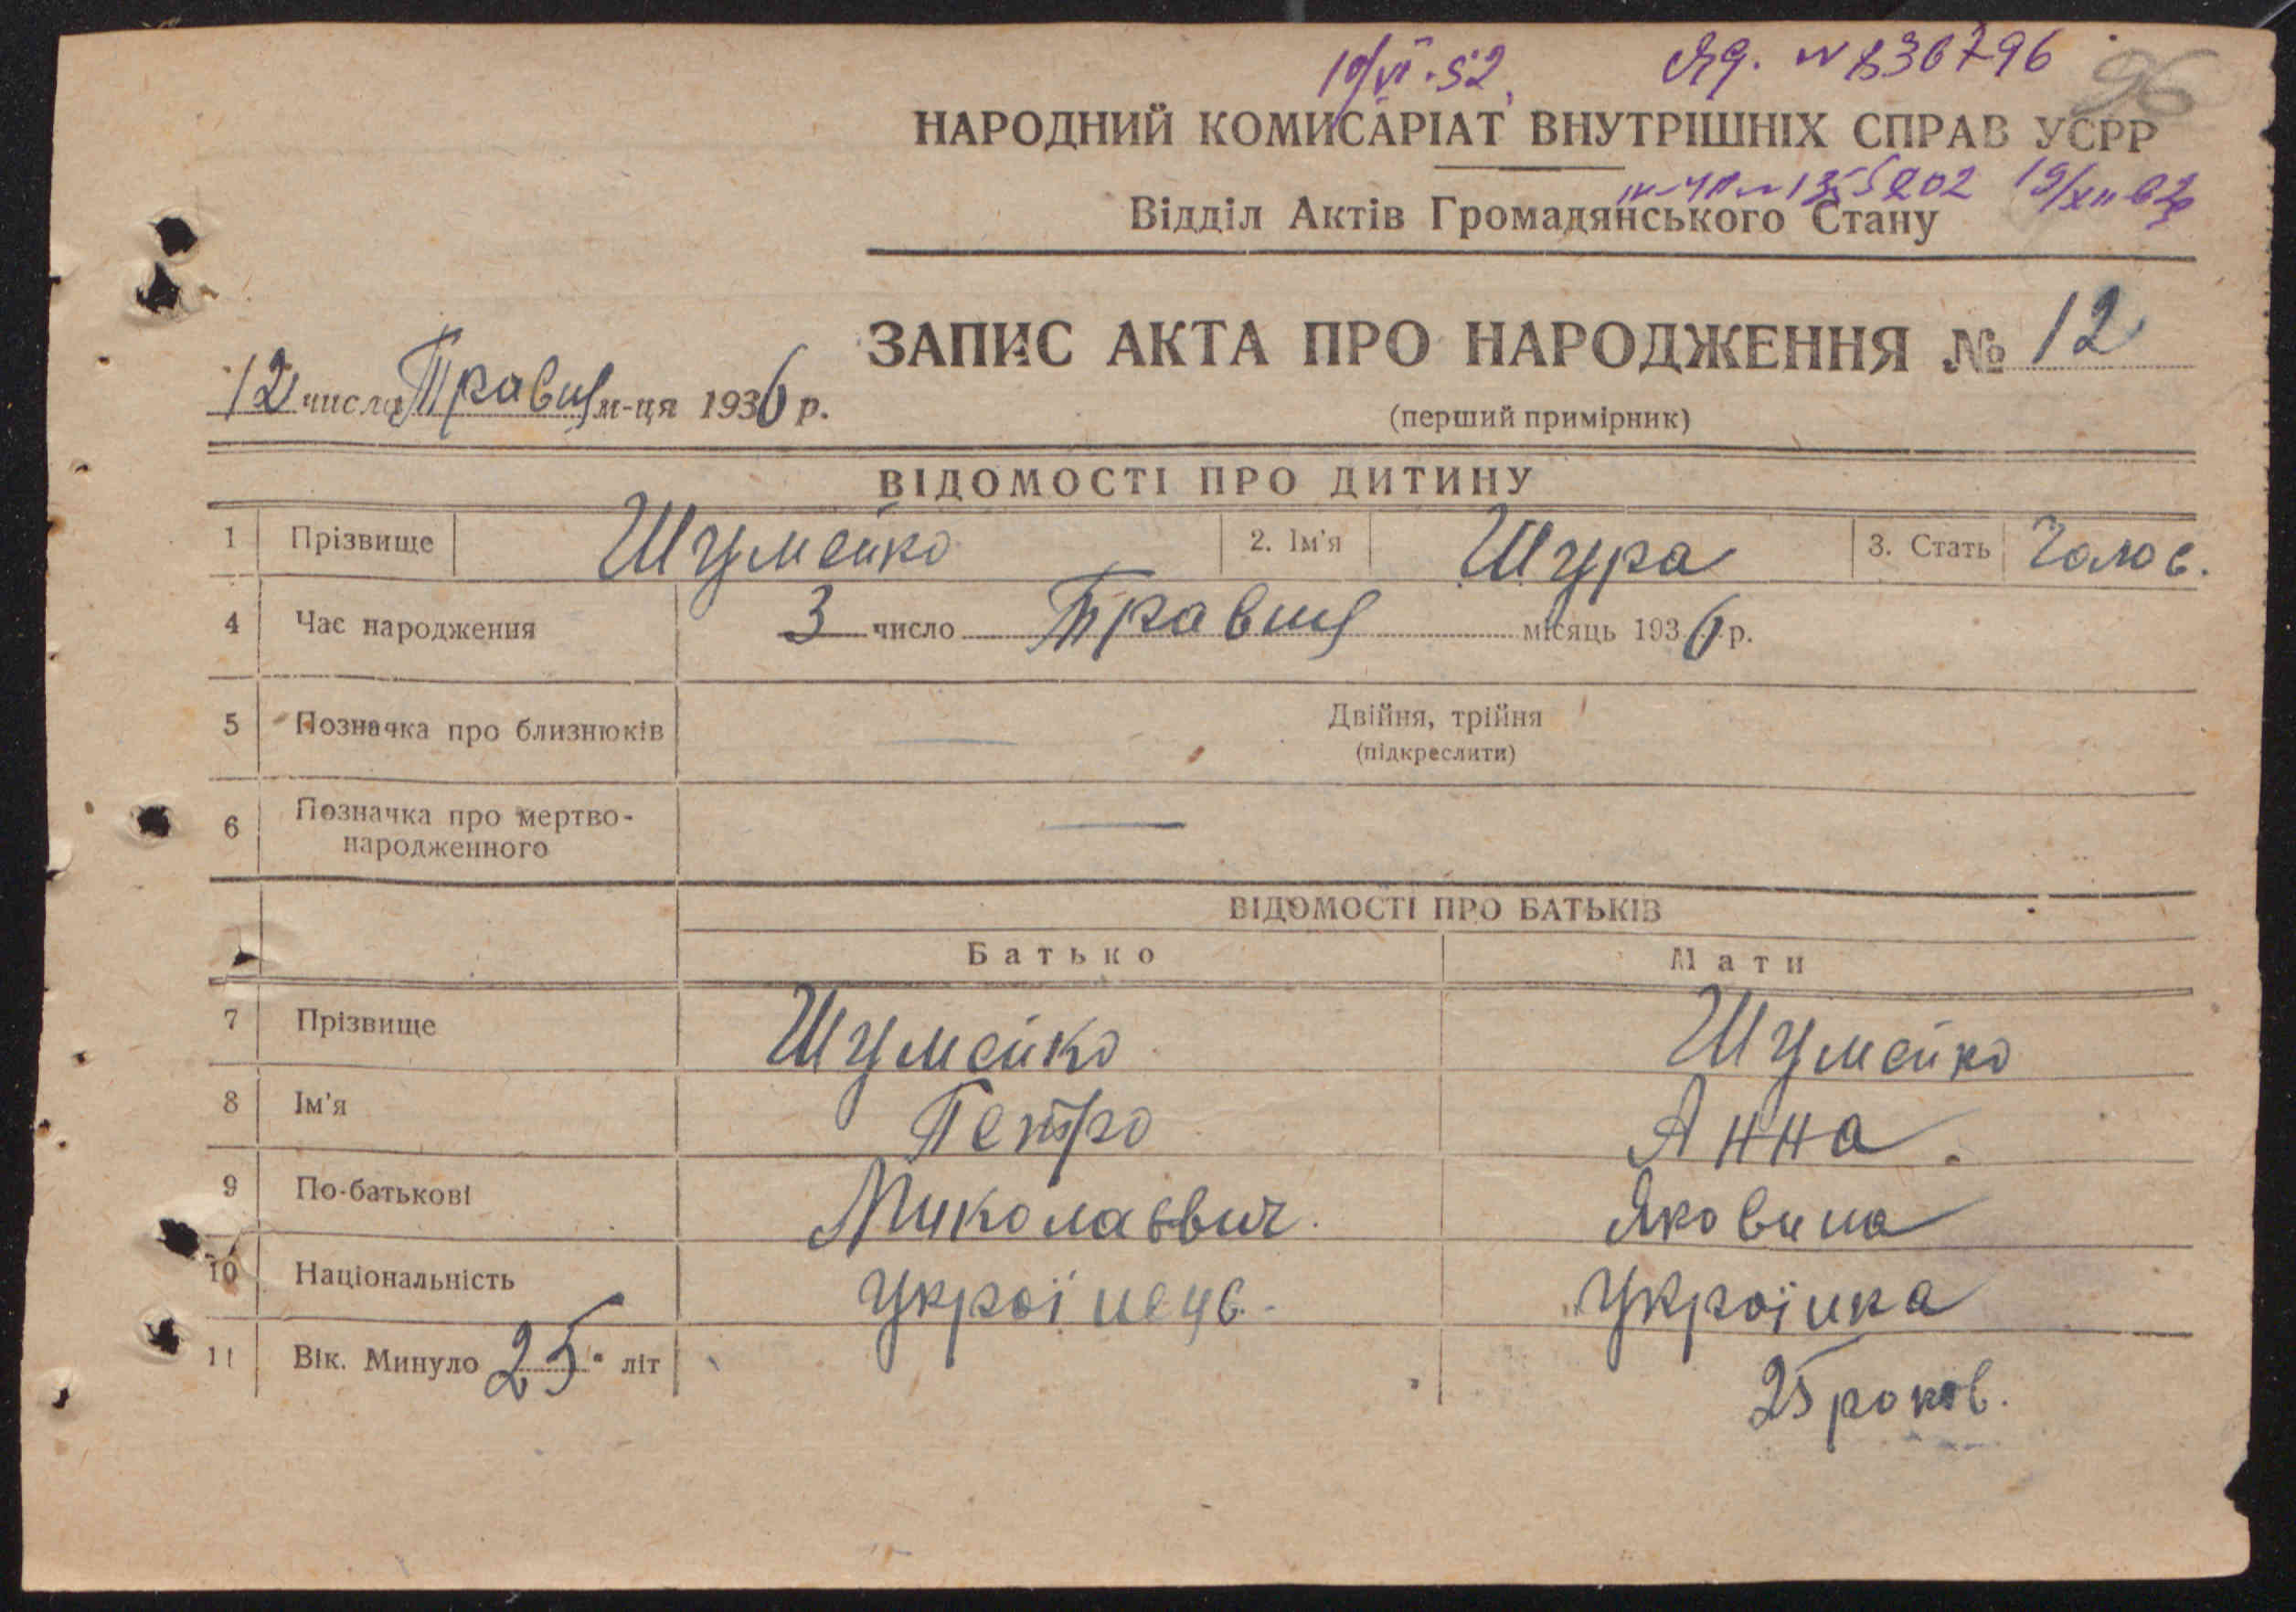 10/VI-52. Яд. № 836796 96
НАРОДНИЙ КОМИСАРІАТ ВНУТРІШНІХ СПРАВ УСРР
1355202 19/XII 62
Відділ Актів Громадянського Стану
ЗАПИС АКТА ПРО НАРОДЖЕННЯ № 12
12 числа Травня м-ця 1936 р.
(перший примірник)
ВІДОМОСТІ ПРО ДИТИНУ
1 Прізвище Шумейко 2. Ім'я Шура 3. Стать Чолов.
4 Час народження 3 число Травня місяць 1936 р.
5 Позначка про близнюків — Двійня, трійня
(підкреслити)
6 Позначка про мертво-
народженного —
ВІДОМОСТІ ПРО БАТЬКІВ
Батько Мати
7 Прізвище Шумейко Шумейко
8 Ім'я Петро Анна.
9 По-батькові Миколаєвич. Яковина
10 Національність Українець. Українка
11 Вік. Минуло 25 літ 25 роков.